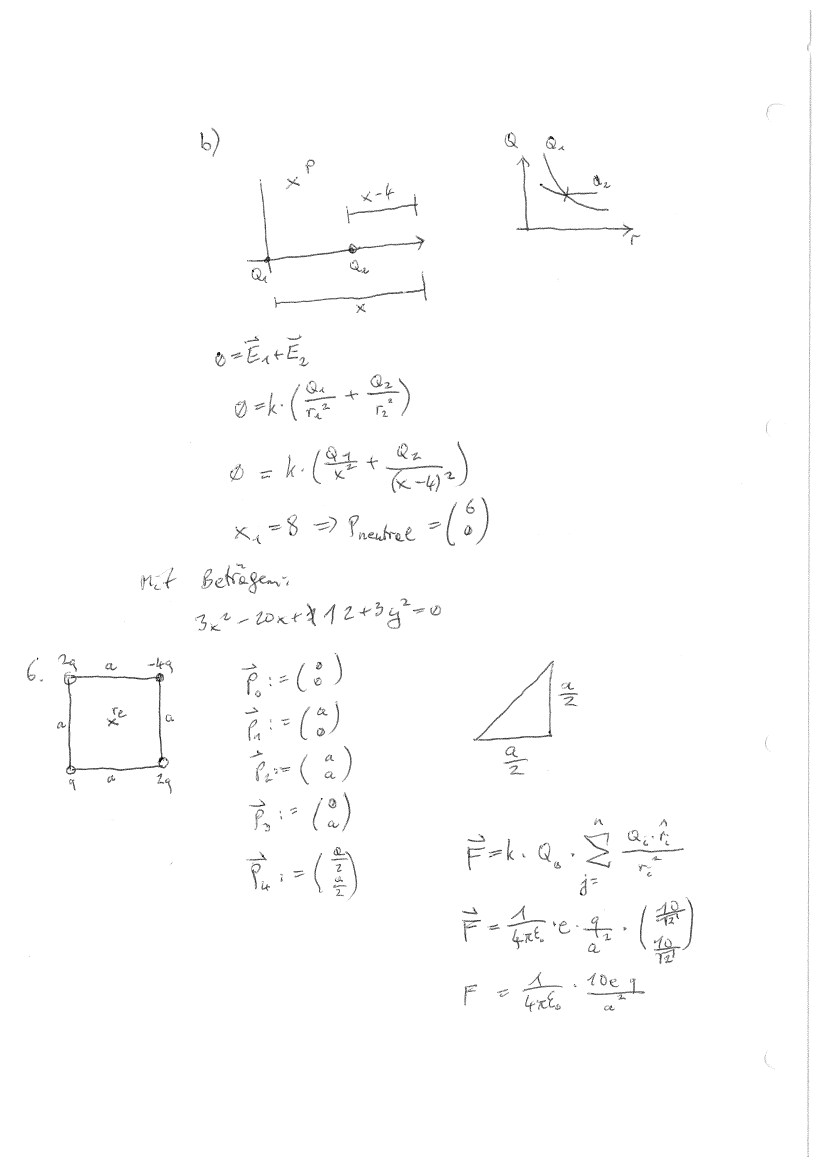 b)
x P
x-4
Q₁
Q₂
x
Q
Q₁
Q₂
r
0 = E⃗₁ + E⃗₂
0 = k · (Q₁/r₁² + Q₂/r₂²)
0 = k · (Q1/x² + Q₂/(x-4)²)
x₁ = 8 => P neutral = (6 0)
Mit Beträgen:
3x² - 20x + 112 + 3y² = 0
6.
2q a -4q
a x re a
q a 2q
P⃗₀ := (0 0)
P⃗₁ := (a 0)
P⃗₂ := (a a)
P⃗₃ := (0 a)
P⃗₄ := (a/2 a/2)
a/2
a/2
F⃗ = k · Q₀ · Σ n j= Qᵢ · r̂ᵢ / rᵢ²
F⃗ = 1/4πε₀ · e · q/a² · (10/√2 10/√2)
F = 1/4πε₀ · 10e q/a²